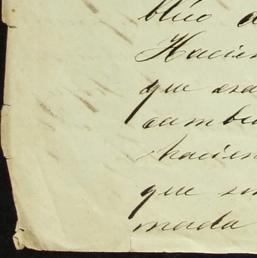 blico
Hacien
que esa
cambi
hacien
que sin
mada